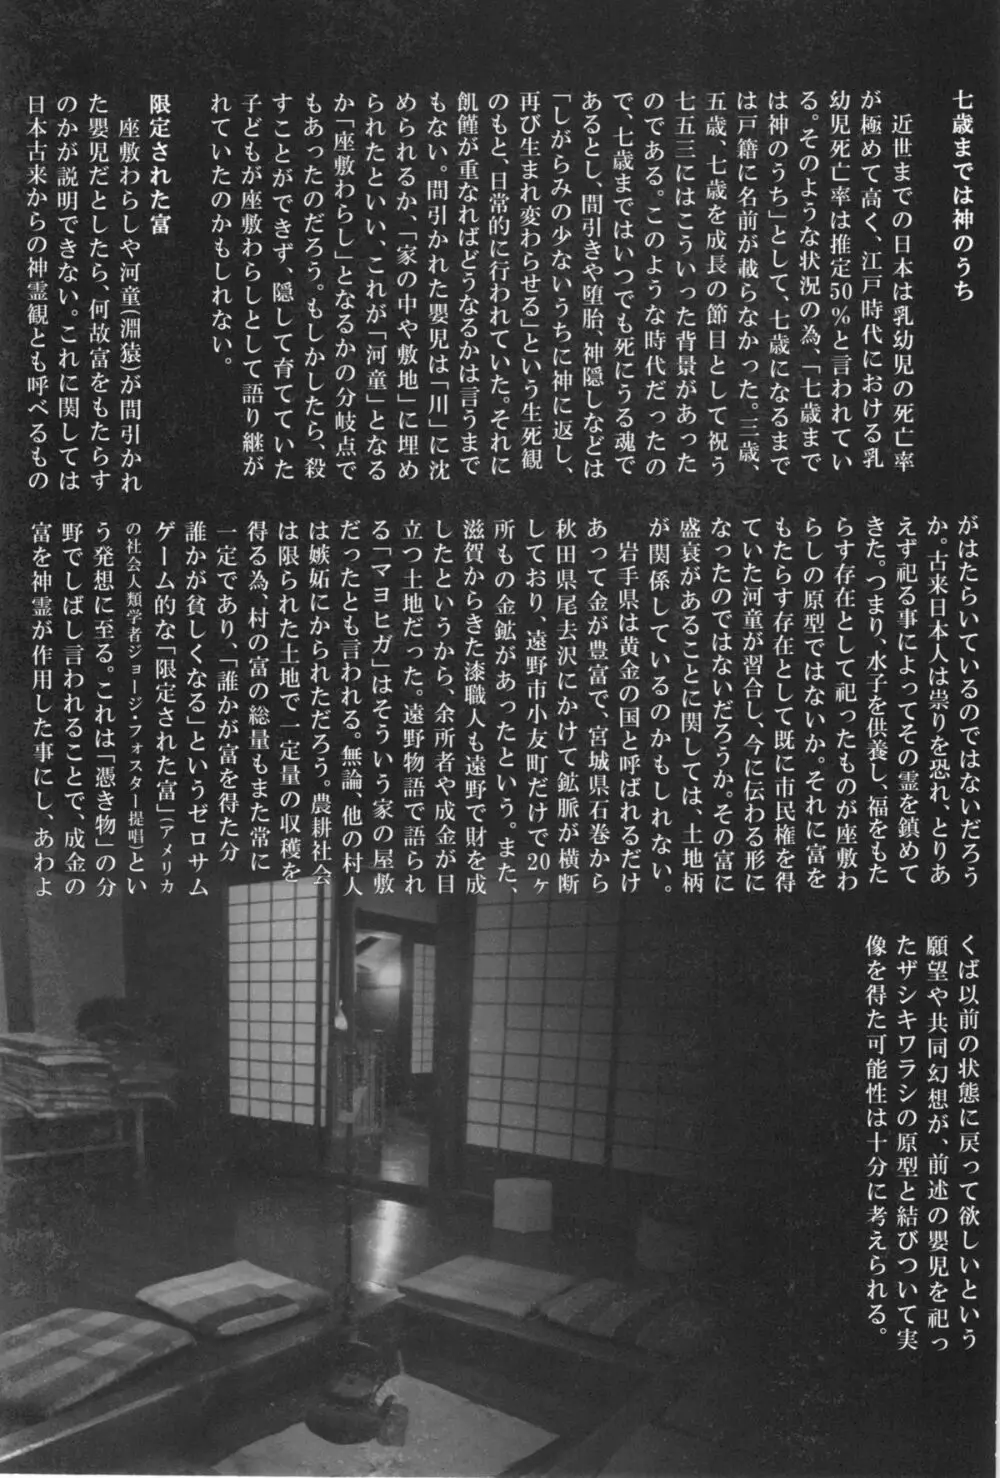 七歳までは神のうち
　近世までの日本は乳幼児の死亡率
が極めて高く、江戸時代における乳
幼児死亡率は推定50％と言われてい
る。そのような状況の為、「七歳まで
は神のうち」として、七歳になるまで
は戸籍に名前が載らなかった。三歳、
五歳、七歳を成長の節目として祝う
七五三にはこういった背景があった
のである。このような時代だったの
で、七歳まではいつでも死にうる魂で
あるとし、間引きや堕胎、神隠しなどは
「しがらみの少ないうちに神に返し、
再び生まれ変わらせる」という生死観
のもと、日常的に行われていた。それに
飢饉が重なればどうなるかは言うまで
もない。間引かれた嬰児は「川」に沈
められるか、「家の中や敷地」に埋め
られたといい、これが「河童」となる
か「座敷わらし」となるかの分岐点で
もあったのだろう。もしかしたら、殺
すことができず、隠して育てていた
子どもが座敷わらしとして語り継が
れていたのかもしれない。
限定された富
　座敷わらしや河童（淵猿）が間引かれ
た嬰児だとしたら、何故富をもたらす
のかが説明できない。これに関しては
日本古来からの神霊観とも呼べるもの
がはたらいているのではないだろう
か。古来日本人は祟りを恐れ、とりあ
えず祀る事によってその霊を鎮めて
きた。つまり、水子を供養し、福をもた
らす存在として祀ったものが座敷わ
らしの原型ではないか。それに富を
もたらす存在として既に市民権を得
ていた河童が習合し、今に伝わる形に
なったのではないだろうか。その富に
盛衰があることに関しては、土地柄
が関係しているのかもしれない。
　岩手県は黄金の国と呼ばれるだけ
あって金が豊富で、宮城県石巻から
秋田県尾去沢にかけて鉱脈が横断
しており、遠野市小友町だけで20ヶ
所もの金鉱があったという。また、
滋賀からきた漆職人も遠野で財を成
したというから、余所者や成金が目
立つ土地だった。遠野物語で語られ
る「マヨヒガ」はそういう家の屋敷
だったとも言われる。無論、他の村人
は嫉妬にかられただろう。農耕社会
は限られた土地で一定量の収穫を
得る為、村の富の総量もまた常に
一定であり、「誰かが富を得た分
誰かが貧しくなる」というゼロサム
ゲーム的な「限定された富」（アメリカ
の社会人類学者ジョージ・フォスター提唱）とい
う発想に至る。これは「憑き物」の分
野でしばし言われることで、成金の
富を神霊が作用した事にし、あわよ
くば以前の状態に戻って欲しいという
願望や共同幻想が、前述の嬰児を祀っ
たザシキワラシの原型と結びついて実
像を得た可能性は十分に考えられる。